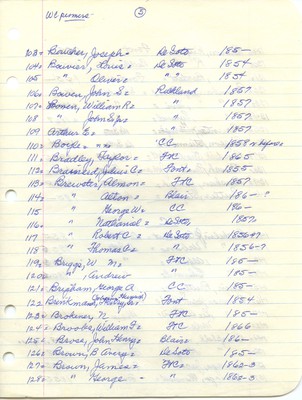 WC pioneers
3
103= Boucher, Joseph= De Soto 185-
104= Bouvier, Louis= De Soto 1854
105 " Oliver= " " 1854
106= Bowen, John S= Rockland 1857
107= Bowen, William R= " 1857
108 " John S Jr= " 1857
109 Arthur E= " 1857
110= = CC 1858 or before
111= Bradley, Taylor= FtC 1865
112= C= Font= 1855
113= Brewster, Almon= FtC 1857
114= " Alton= Blair 186-
115 " George W= CC 186-
116 " Nathaniel= De Soto 1857
117 " Robert C= De Soto 1856-7
118 " Thomas C= " 1856-7
119= Briggs, W. M= FtC 185-
120= " Andrew " 185-
121= Brigham, George A CC 185-
122= Font 1854
123= N= FtC 185-
124= Brooks, William F= FtC 1866
125= John Henry= Blair= 186-
126= Brown, B Avery= De Soto 185-
127= Brown, James= FtC= 1862-3
128= " George " 1862-3